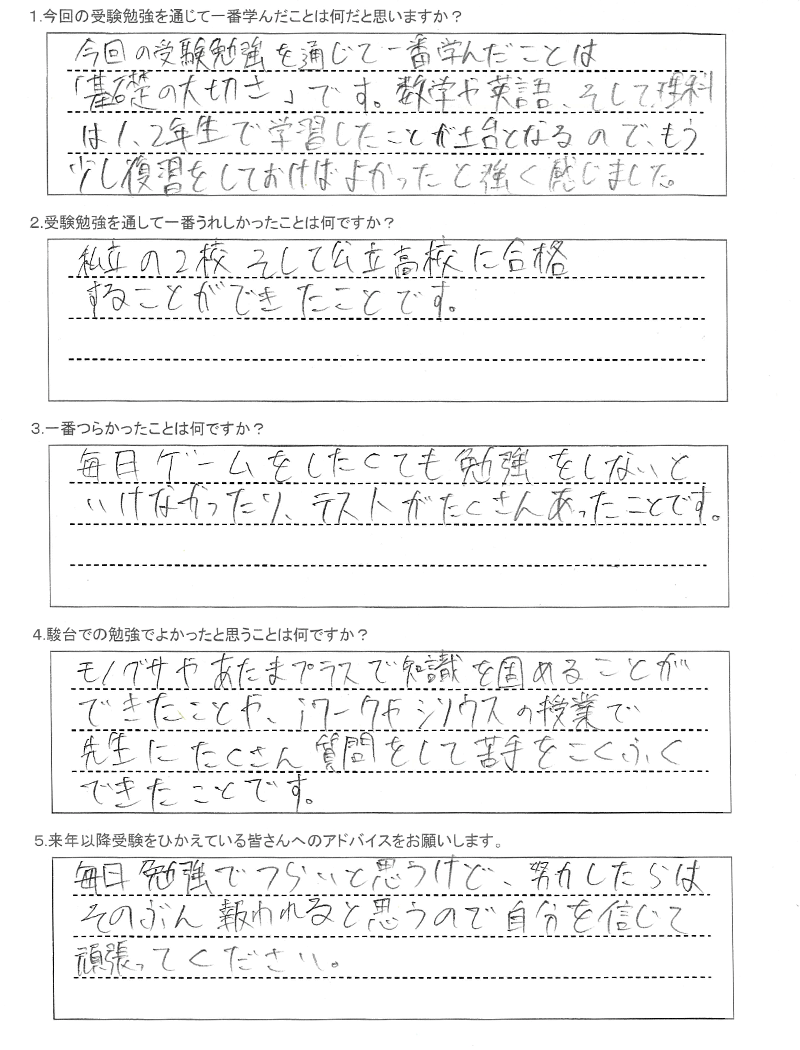 1.今回の受験勉強を通じて一番学んだことは何だと思いますか？
今回の受験勉強を通じて一番学んだことは
「基礎の大切さ」です。数学や英語、そして理科
は1、2年生で学習したことが土台となるので、もう
少し復習をしておけばよかったと強く感じました。
2.受験勉強を通して一番うれしかったことは何ですか？
私立の2校そして公立高校に合格
することができたことです。
3.一番つらかったことは何ですか？
毎日ゲームをしたくても勉強をしないと
いけなかったり、テストがたくさんあったことです。
4.駿台での勉強でよかったと思うことは何ですか？
モノグサやあたまプラスで知識を固めることが
できたことや、iワークやシリウスの授業で
先生にたくさん質問をして苦手をこくふく
できたことです。
5.来年以降受験をひかえている皆さんへのアドバイスをお願いします。
毎日勉強でつらいと思うけど、努力したらは
そのぶん報われると思うので自分を信じて
頑張ってください。